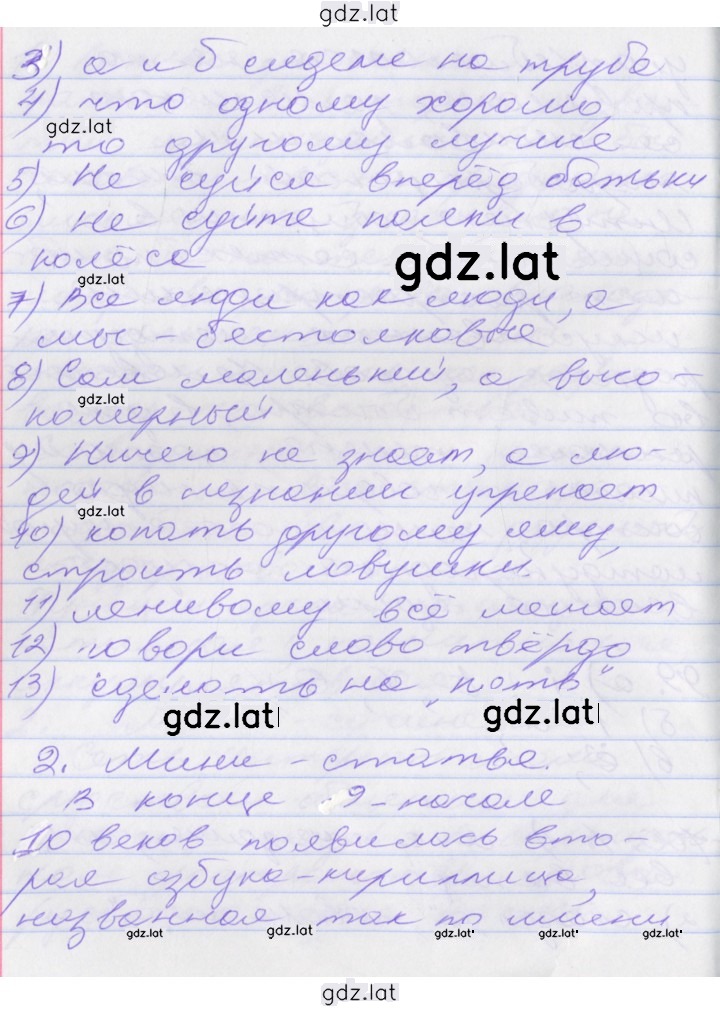 gdz.lat
3) а и б сидели на трубе
4) что одному хорошо,
gdz.lat
то другому лучше
5) Не суйся вперёд батьки
6) не суйте палки в
колёса
gdz.lat
gdz.lat
7) Все люди как люди, а
мы - бестолковые
8) Сам маленький, а высо-
gdz.lat
комерный
9) Ничего не знает, а лю-
дей в незнании упрекает
gdz.lat
10) копать другому яму,
строить ловушки.
11) ленивому всё мешает
12) говори слово твёрдо
13) сделать на "пять"
gdz.lat
gdz.lat
2. Мини - статья.
В конце 9 - начале
10 веков появилась вто-
рая азбука - кириллица,
названная так по имени
gdz.lat
gdz.lat
gdz.lat
gdz.lat
gdz.lat
gdz.lat